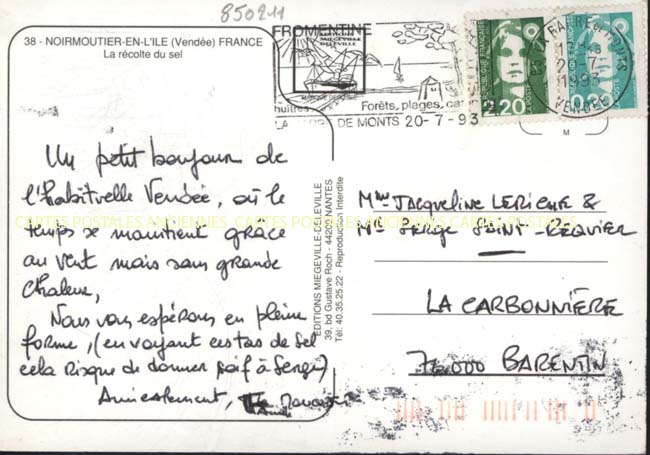 850211
38 - NOIRMOUTIER-EN-L'ILE (Vendée) FRANCE
La récolte du sel
Un petit boujour de
l'habituelle Vendée, où le
temps se maintient grâce
au vent mais sans grande
chaleur,
Nous vous espérons en pleine
forme, (en voyant ces tas de sel
cela risque de donner soif à Serge)
Amicalement,
EDITIONS MIEGEVILLE-DELEVILLE
39, bd Gustave Roch - 44200 NANTES
Tél: 40.35.25.22 - Reproduction Interdite
FROMENTINE
MIEGEVILLE
DELEVILLE
huîtres
Forêts, plages,
DE MONTS 20-7-93
LA BARRE DE MONTS
20-7
1993
VENDÉE
REPUBLIQUE FRANÇAISE
2,20
M
Mme Jacqueline LERICHE &
Mr SERGE SAINT-REQUIER
LA CARBONNIÈRE
76000 BARENTIN
CARTES POSTALES ANCIENNES CARTES POSTALES ANCIENNES CARTES POSTALES